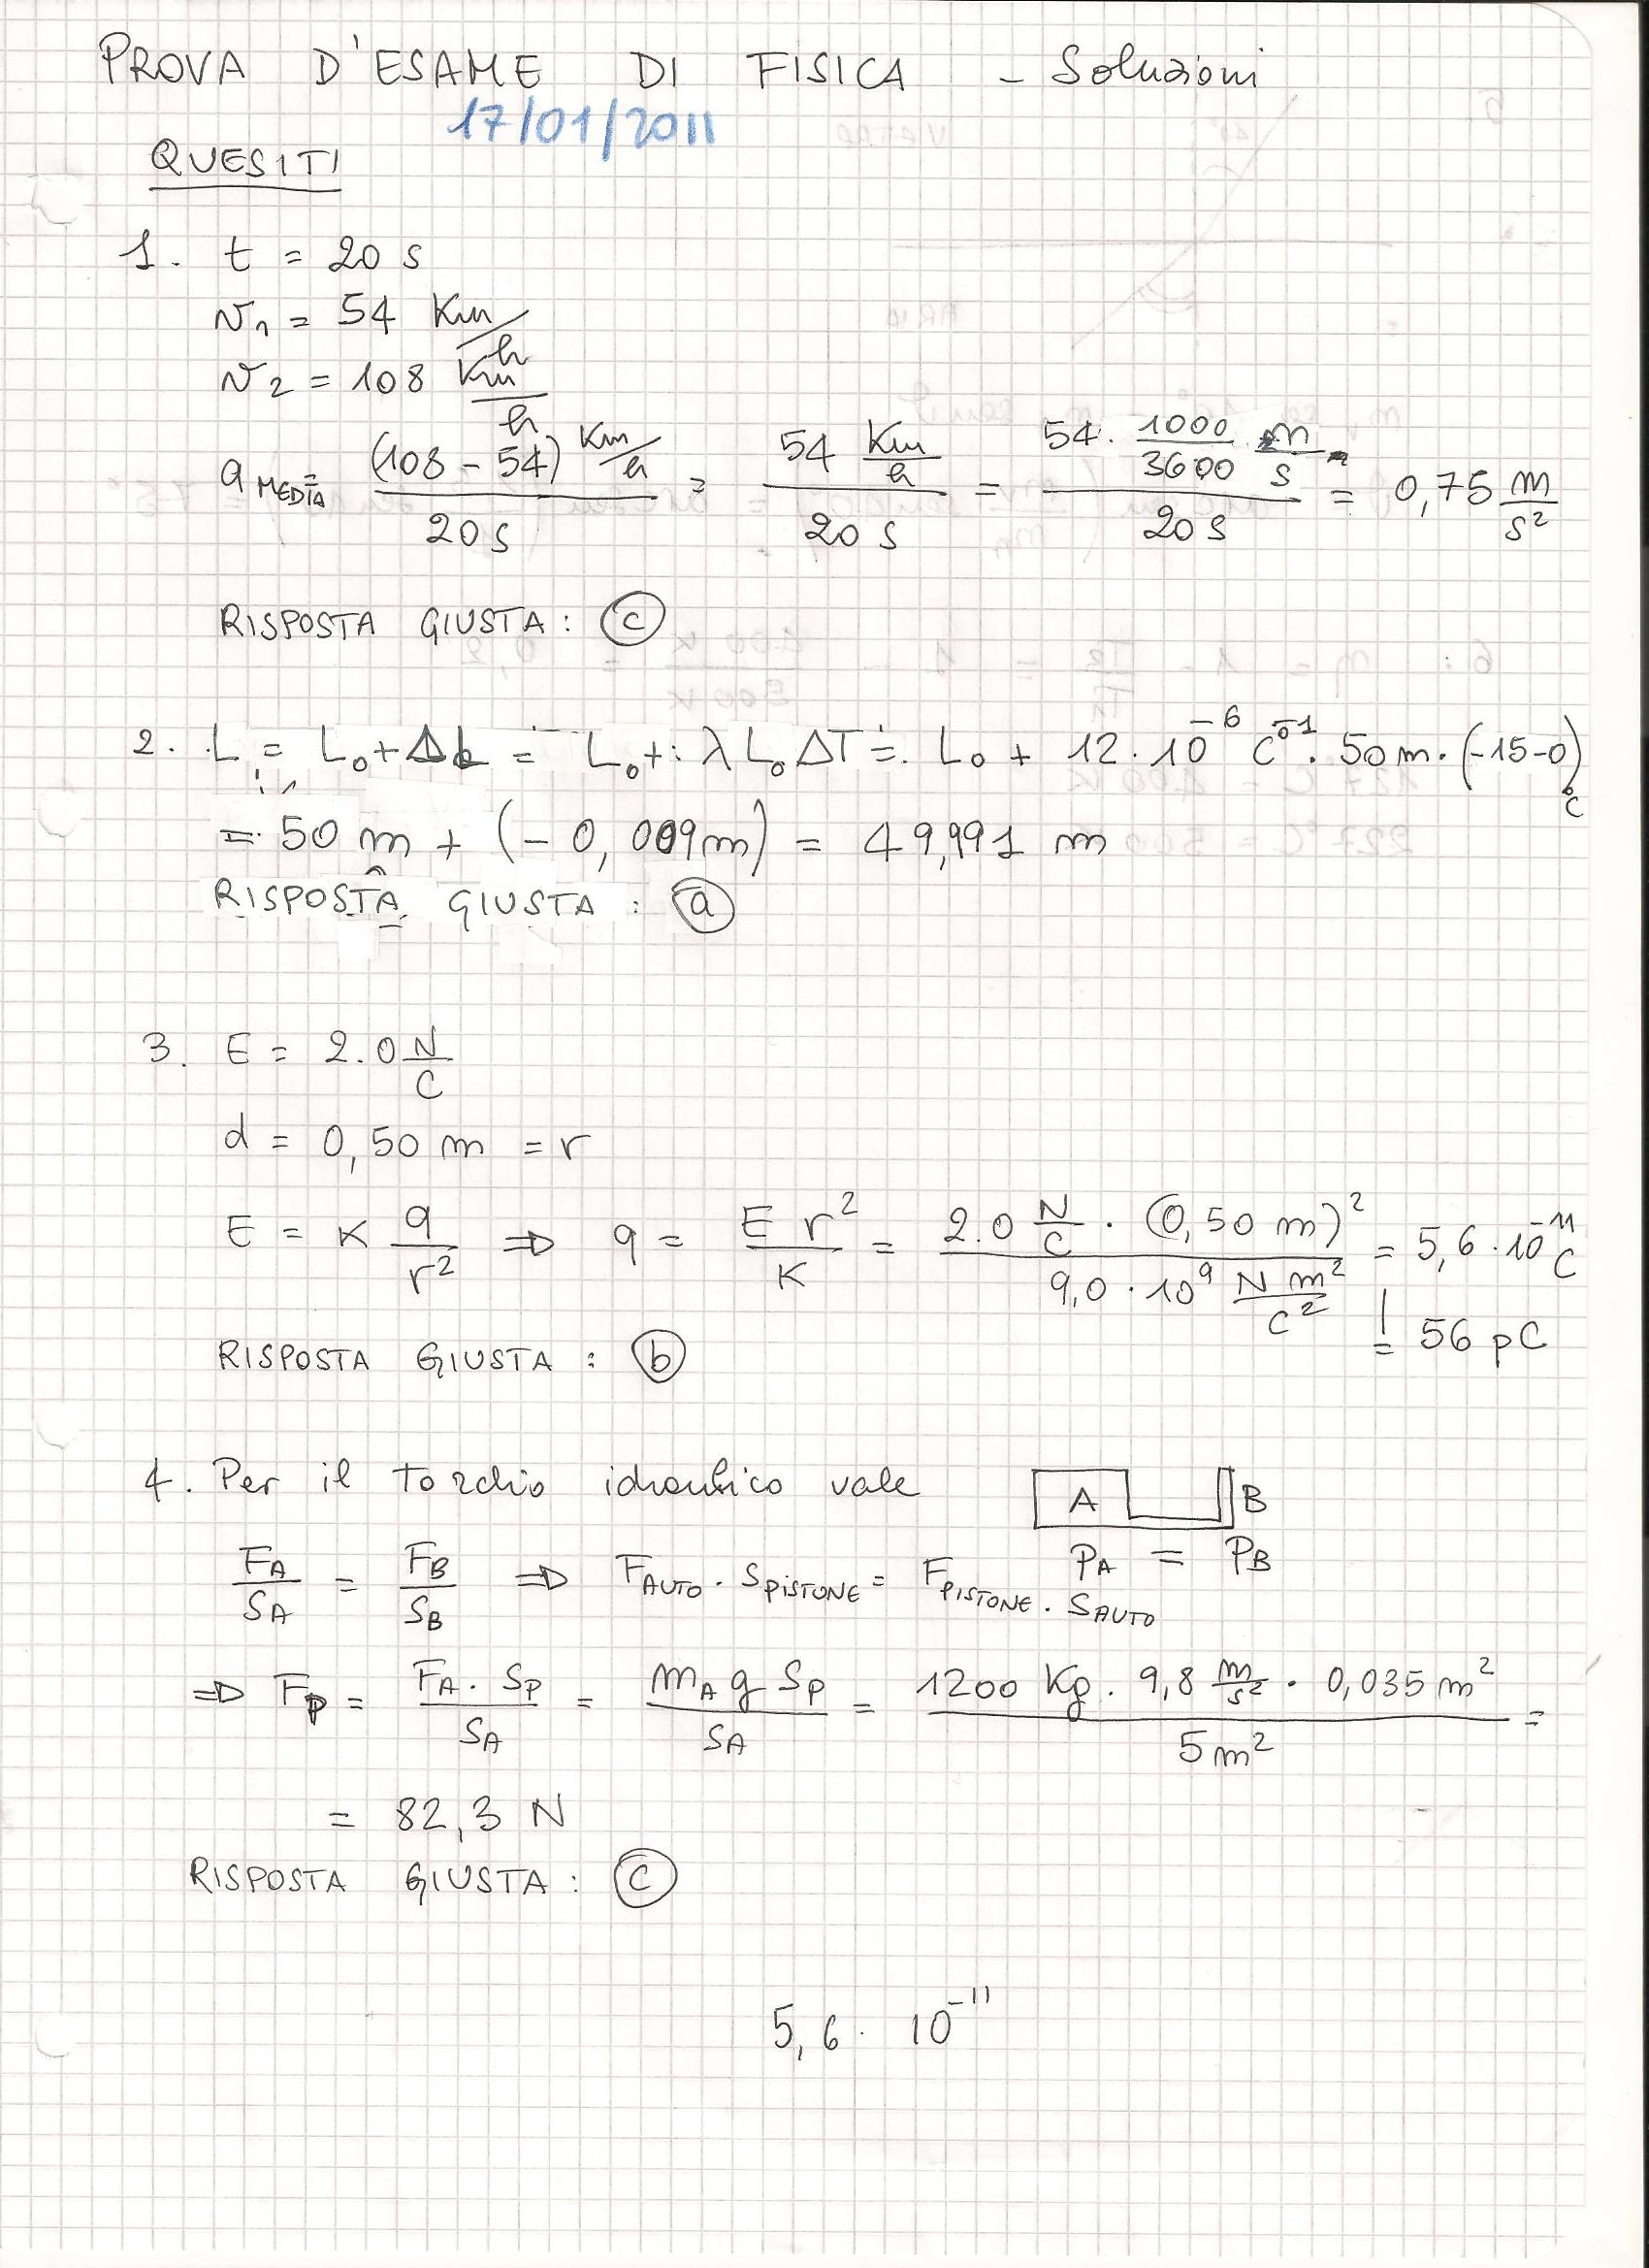 PROVA D'ESAME DI FISICA - Soluzioni
17/01/2011
QUESITI
1. t = 20 s
v₁ = 54 Km/h
v₂ = 108 Km/h
a MEDIA = (108 - 54) Km/h / 20 s = 54 Km/h / 20 s = 54 · 1000/3600 m/s / 20 s = 0,75 m/s²
RISPOSTA GIUSTA: (c)
2. L = L₀ + ΔL = L₀ + λ L₀ ΔT = L₀ + 12 · 10⁻⁶ C°⁻¹ · 50 m · (-15-0) °C
= 50 m + (-0,009 m) = 49,991 m
RISPOSTA GIUSTA : (a)
3. E = 2.0 N/C
d = 0,50 m = r
E = K q/r² ⇒ q = E r²/K = 2.0 N/C · (0,50 m)² / 9,0 · 10⁹ N m²/C² = 5,6 · 10⁻¹¹ C
= 56 pC
RISPOSTA GIUSTA : (b)
4. Per il torchio idraulico vale
A B
F_A/S_A = F_B/S_B ⇒ F_AUTO · S_PISTONE = F_PISTONE · S_AUTO
P_A = P_B
⇒ F_P = F_A · S_P / S_A = m_A g S_P / S_A = 1200 Kg · 9,8 m/s² · 0,035 m² / 5 m² =
= 82,3 N
RISPOSTA GIUSTA : (c)
5,6 · 10⁻¹¹